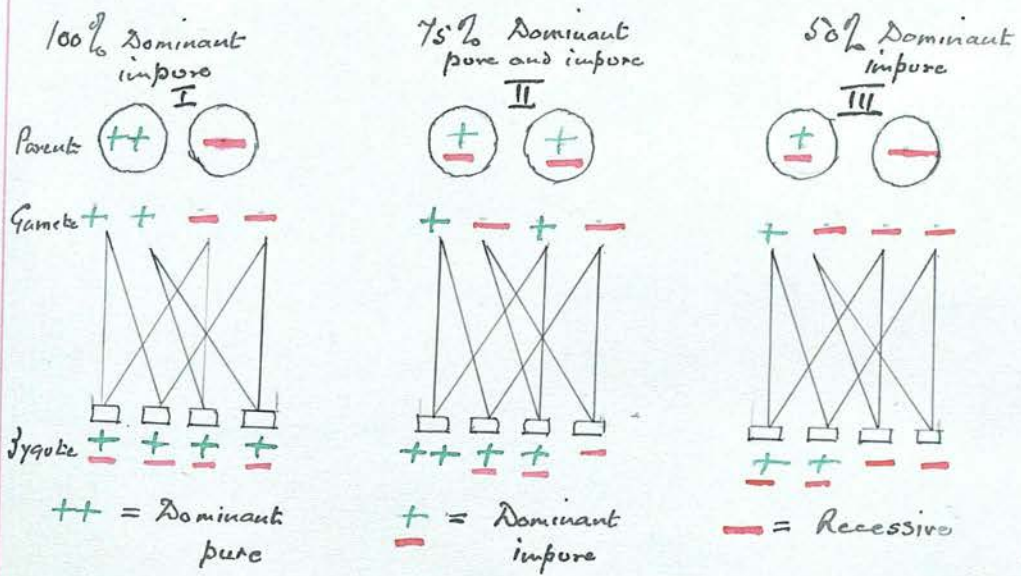 100% Dominant
impure
I
75% Dominant
pure and impure
II
50% Dominant
impure
III
Parents ++ − + − + − + − −
Gamete + + − − + − + − + − − −
Zygote + − + − + − + − ++ + − + − − + − + − − −
++ = Dominant
pure
+ − = Dominant
impure
− = Recessive